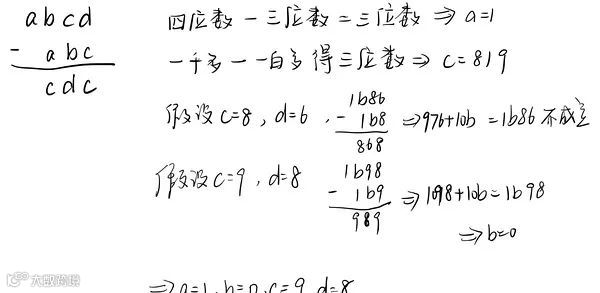 abcd
- abc
cdc
四位数-三位数=三位数⇒a=1
一千多-一百多得三位数⇒c=8|9
假设c=8,d=6, 1b86 - 1b8 868 ⇒976+10b=1b86不成立
假设c=9,d=8 1b98 - 1b9 989 ⇒1098+10b=1b98
⇒b=0
⇒a=1,b=0,c=9,d=8
大数跨境